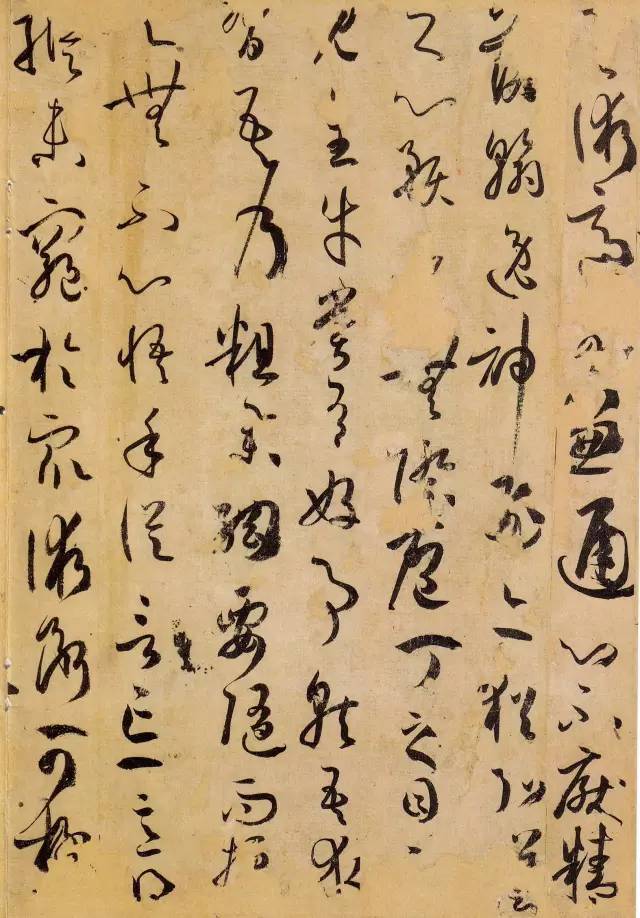 術適可兼通心不厭精
落翰逸神飛亦猶弘羊
之心預乎無際庖丁之目不
見全牛嘗有好事就吾求
習吾乃粗舉綱要隨而授
之無不心悟手從言忘意得
縱未窮於眾術斷可極